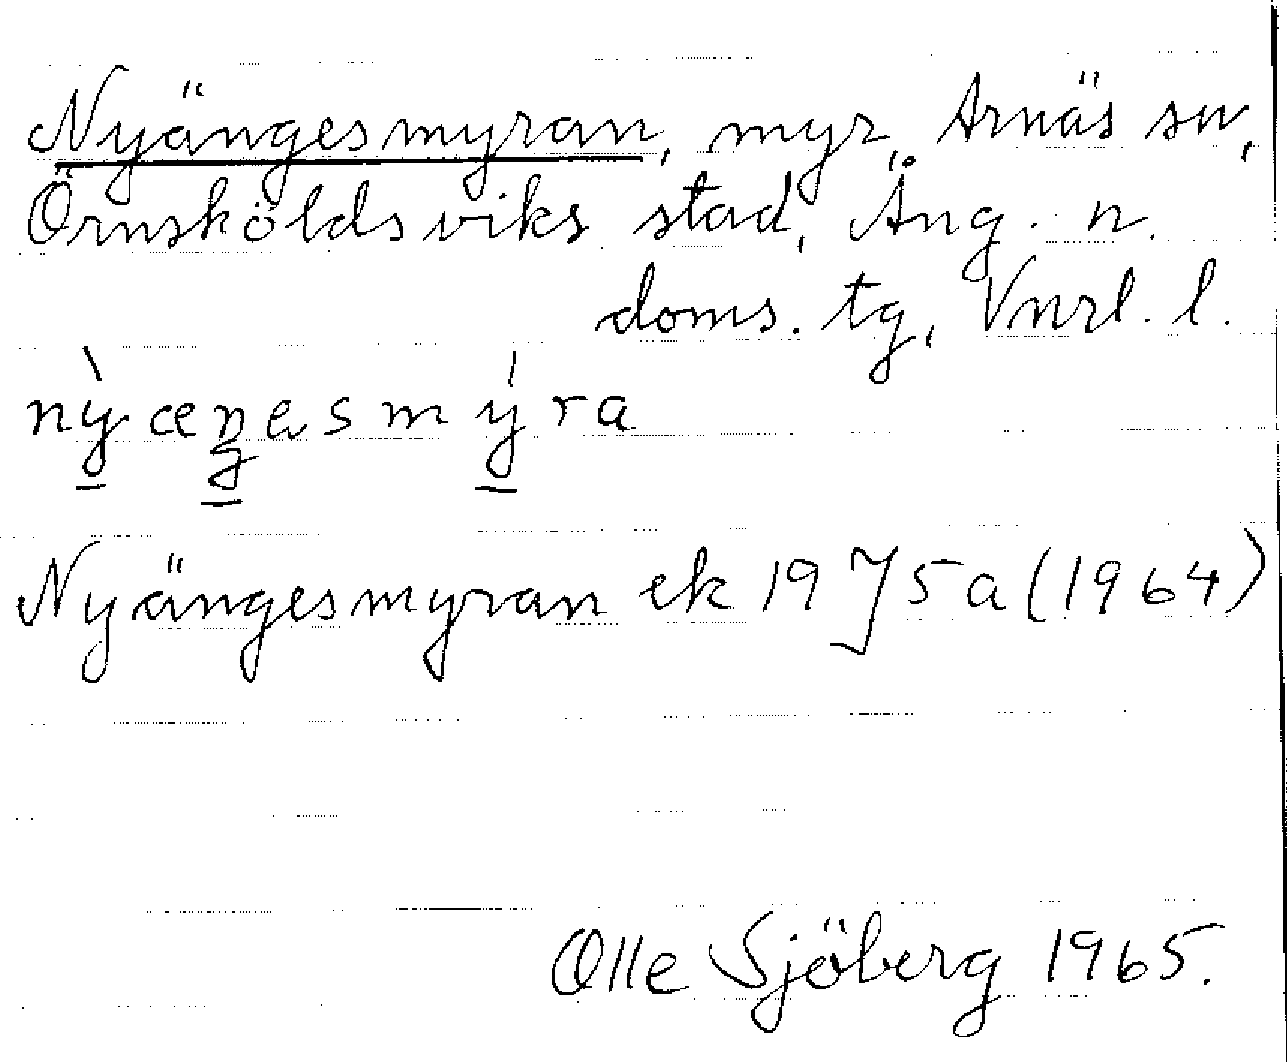 Nyängesmyran, myr, Arnäs sn,
Örnsköldsviks stad, Ång. n.
doms. tg, Vnrl. l.
nỳæŋesmýra
Nyängesmyran ek 19 J 5 a (1964)
Olle Sjöberg 1965.